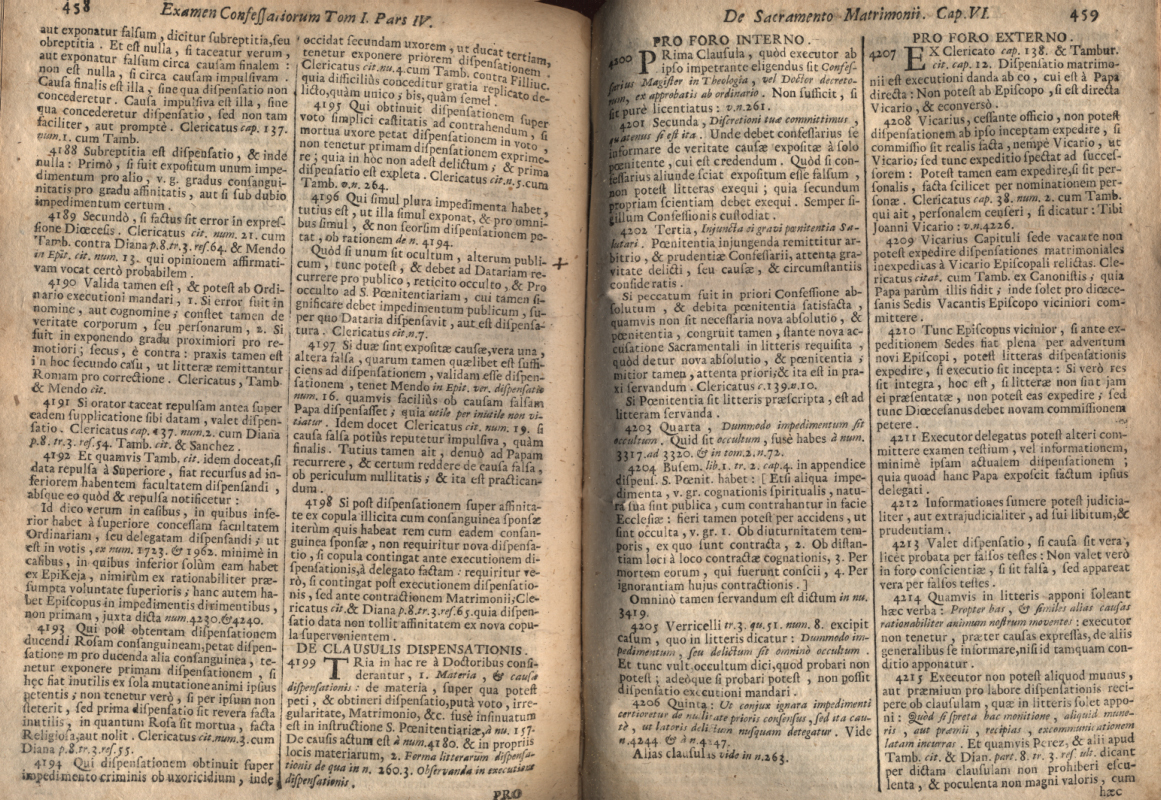 458
Examen Confessariorum Tom I. Pars IV.
aut exponatur falsum, dicitur subreptitia, seu
obreptitia. Et est nulla, si taceatur verum,
aut exponatur falsum circa causam finalem:
non est nulla, si circa causam impulsivam.
Causa finalis est illa, sine qua dispensatio non
concederetur. Causa impulsiva est illa, sine
qua concederetur dispensatio, sed non tam
faciliter, aut promptè. Clericatus cap. 137.
num. 1. cum Tamb.
4188 Subreptitia est dispensatio, & inde
nulla: Primò, si fuit expositum unum impe-
dimentum pro alio, v. g. gradus consangui-
nitatis pro gradu affinitatis, aut si sub dubio
impedimentum certum.
4189 Secundò, si factus sit error in expres-
sione Diœcesis. Clericatus cit. num. 21. cum
Tamb. contra Diana p. 8. tr. 3. ref. 64. & Mendo
in Epit. cit. num. 13. qui opinionem affirmati-
vam vocat certò probabilem.
4190 Valida tamen est, & potest ab Ordi-
nario executioni mandari, 1. Si error fuit in
nomine, aut cognomine; constet tamen de
veritate corporum, seu personarum, 2. Si
fuit in exponendo gradu proximiori pro re-
motiori; secus, è contra: praxis tamen est
in hoc secundo casu, ut litteræ remittantur
Romam pro correctione. Clericatus, Tamb.
& Mendo cit.
4191 Si orator taceat repulsam antea super
eadem supplicatione sibi datam, valet dispen-
satio. Clericatus cap. 137. num. 2. cum Diana
p. 8. tr. 3. ref. 54. Tamb. cit. & Sanchez.
4192 Et quamvis Tamb. cit. idem doceat, si
data repulsa à Superiore, fiat recursus ad in-
feriorem habentem facultatem dispensandi,
absque eo quòd & repulsa notificetur:
Id dico verum in casibus, in quibus infe-
rior habet à superiore concessam facultatem
Ordinariam, seu delegatam dispensandi; ut
est in votis, ex num. 1723. & 1962. minimè in
casibus, in quibus inferior solùm eam habet
ex EpiKeja, nimirùm ex rationabiliter præ-
sumpta voluntate superioris; hanc autem ha-
bet Episcopus in impedimentis dirimentibus,
non primam, juxta dicta num. 4230. & 4240.
4193 Qui post obtentam dispensationem
ducendi Rosam consanguineam, petat dispen-
satione m pro ducenda alia consanguinea, te-
netur exponere primam dispensationem, si
hęc fiat inutilis ex sola mutatione animi ipsius
petentis; non tenetur verò, si per ipsum non
steterit, sed prima dispensatio sit revera facta
inutilis, in quantum Rosa sit mortua, facta
Religiosa, aut nolit. Clericatus cit. num. 3. cum
Diana p. 8. tr. 3. ref. 55.
4194 Qui dispensationem obtinuit super
impedimento criminis ob uxoricidium, inde
occidat secundam uxorem, ut ducat tertiam,
tenetur exponere priorem dispensationem.
Clericatus cit. nu. 4. cum Tamb. contra Filliuc.
quia difficiliùs conceditur gratia replicato de-
licto, quàm unico; bis, quàm semel.
4195 Qui obtinuit dispensationem super
voto simplici castitatis ad contrahendum, si
mortua uxore petat dispensationem in voto,
non tenetur primam dispensationem exprime-
re; quia in hoc non adest delictum; & prima
dispensatio est expleta. Clericatus cit. n. 5. cum
Tamb. v. n. 264.
4196 Qui simul plura impedimenta habet,
tutius est, ut illa simul exponat, & pro omni-
bus simul, & non seorsim dispensationem pe-
tat, ob rationem de n. 4194.
Quòd si unum sit ocultum, alterum publi-
cum, tunc potest, & debet ad Datariam re-
currere pro publico, reticito occulto, & Pro
occulto ad S. Pœnitentiariam, cui tamen si-
gnificare debet impedimentum publicum, su-
per quo Dataria dispensavit, aut est dispensa-
tura. Clericatus cit. n. 7.
4197 Si duæ sint expositæ causæ, vera una,
altera falsa, quarum tamen quælibet est suffi-
ciens ad dispensationem, validam esse dispen-
sationem, tenet Mendo in Epit. ver. dispensatio
num. 16. quamvis faciliùs ob causam falsam
Papa dispensasset; quia utile per inutile non vi-
tiatur. Idem docet Clericatus cit. num. 19. si
causa falsa potiùs reputetur impulsiva, quàm
finalis. Tutius tamen ait, denuò ad Papam
recurrere, & certum reddere de causa falsa,
ob periculum nullitatis; & ita est practican-
dum.
4198 Si post dispensationem super affinita-
te ex copula illicita cum consanguinea sponsæ
iterùm quis habeat rem cum eadem consan-
guinea sponsæ, non requiritur nova dispensa-
tio, si copula contingat ante executionem di-
spensationis, à delegato factam: requiritur ve-
rò, si contingat post executionem dispensatio-
nis, sed ante contractionem Matrimonii, Cle-
ricatus cit. & Diana p. 8. tr. 3. ref. 65. quia dispen-
satio data non tollit affinitatem ex nova copu-
la supervenientem.
DE CLAUSULIS DISPENSATIONIS.
4199 TRia in hac re à Doctoribus consi-
derantur, 1. Materia, & causa
dispensationis: de materia, super qua potest
peti, & obtineri dispensatio, putà voto, irre-
gularitate, Matrimonio, &c. fusè insinuatum
est in instructione S. Pœnitentiariæ, à nu. 157.
De causis actum est à num. 4180. & in propriis
locis materiarum, 2. Forma litterarum dispensa-
tionis de qua in n. 260. 3. Observanda in executione
dispensationis.
PRO
De Sacramento Matrimonii. Cap. VI.
459
PRO FORO INTERNO.
4200 PRima Clausula, quòd executor ab
ipso impetrante eligendus sit Confes-
sarius Magister in Theologia, vel Doctor decreto-
rum, ex approbatis ab ordinario. Non sufficit, si
sit purè licentiatus: v. n. 261.
4201 Secunda, Discretioni tuæ committimus,
quatenus si est ita. Unde debet confessarius se
informare de veritate causæ expositæ à solo
pœnitente, cui est credendum. Quòd si con-
fessarius aliunde sciat expositum esse falsum,
non potest litteras exequi; quia secundum
propriam scientiam debet exequi. Semper si-
gillum Confessionis custodiat.
4202 Tertia, Injuncta ei gravi pœnitentia Sa-
lutari. Pœnitentia injungenda remittitur ar-
bitrio, & prudentiæ Confessarii, attenta gra-
vitate delicti, seu causæ, & circumstantiis
consideratis.
Si peccatum fuit in priori Confessione ab-
solutum, & debita pœnitentia satisfacta,
quamvis non sit necessaria nova absolutio, &
pœnitentia, congruit tamen, stante nova ac-
cusatione Sacramentali in litteris requisita,
quòd detur nova absolutio, & pœnitentia;
mitior tamen, attenta priori; & ita est in pra-
xi servandum. Clericatus c. 139. n. 10.
Si Pœnitentia sit litteris præscripta, est ad
litteram servanda.
4203 Quarta, Dummodo impedimentum sit
occultum. Quid sit occultum, fusè habes à num.
3317. ad 3320. & in tom. 2. n. 72.
4204 Busem. lib. 1. tr. 2. cap. 4. in appendice
dispens. S. Pœnit. habet: [ Etsi aliqua impe-
dimenta, v. gr. cognationis spiritualis, natu-
ra sua sint publica, cum contrahantur in facie
Ecclesiæ: fieri tamen potest per accidens, ut
sint occulta, v. gr. 1. Ob diuturnitatem tem-
poris, ex quo sunt contracta, 2. Ob distan-
tiam loci à loco contractæ cognationis, 3. Per
mortem eorum, qui fuerunt conscii, 4. Per
ignorantiam hujus contractionis. ]
Omninò tamen servandum est dictum in nu.
3419.
4205 Verricelli tr. 3. qu. 51. num. 8. excipit
casum, quo in litteris dicatur: Dummodo im-
pedimentum, seu delictum sit omninò occultum.
Et tunc vult occultum dici, quod probari non
potest; adeòque si probari potest, non possit
dispensatio executioni mandari.
4206 Quinta: Ut conjux ignara impedimenti
certioretur de nullitate prioris consensus, sed ita cau-
tè, ut latoris delictum nusquam detegatur. Vide
n. 4244 & à n. 4247.
Alias clausulas vide in n. 263.
PRO FORO EXTERNO.
4207 EX Clericato cap. 138. & Tambur.
cit. cap. 12. Dispensatio matrimo-
nii est executioni danda ab eo, cui est à Papa
directa: Non potest ab Episcopo, si est directa
Vicario, & econversò.
4208 Vicarius, cessante officio, non potest
dispensationem ab ipso inceptam expedire, si
commissio sit realis facta, nempè Vicario, ut
Vicario; sed tunc expeditio spectat ad succes-
sorem: Potest tamen eam expedire, si sit per-
sonalis, facta scilicet per nominationem per-
sonæ. Clericatus cap. 38. num. 2. cum Tamb.
qui ait, personalem censeri, si dicatur: Tibi
Joanni Vicario: v. n. 4226.
4209 Vicarius Capituli sede vacante non
potest expedire dispensationes matrimoniales
inexpeditas à Vicario Episcopali relictas. Cle-
ricatus citat. cum Tamb. ex Canonistis; quia
Papa parùm illis fidit; inde solet pro diœce-
sanis Sedis Vacantis Episcopo viciniori com-
mittere.
4210 Tunc Episcopus vicinior, si ante ex-
peditionem Sedes fiat plena per adventum
novi Episcopi, potest litteras dispensationis
expedire, si executio sit incepta: Si verò res
sit integra, hoc est, si litteræ non sint jam
ei præsentatæ, non potest eas expedire; sed
tunc Diœcesanus debet novam commissionem
petere.
4211 Executor delegatus potest alteri com-
mittere examen testium, vel informationem,
minimè ipsam actualem dispensationem;
quia quoad hanc Papa exposcit factum ipsius
delegati.
4212 Informationes sumere potest judicia-
liter, aut extrajudicialiter, ad sui libitum, &
prudentiam.
4213 Valet dispensatio, si causa sit vera,
licet probata per falsos testes: Non valet verò
in foro conscientiæ, si sit falsa, sed appareat
vera per falsos testes.
4214 Quamvis in litteris apponi soleant
hæc verba: Propter has, & similes alias causas
rationabiliter animum nostrum moventes: executor
non tenetur, præter causas expressas, de aliis
generalibus se informare, nisi id tamquam con-
ditio apponatur.
4215 Executor non potest aliquod munus,
aut præmium pro labore dispensationis reci-
pere ob clausulam, quæ in litteris solet appo-
ni: Quòd si spreta hac monitione, aliquid mune-
ris, aut præmii, recipias, excommunicationem
latam incurras. Et quamvis Perez, & alii apud
Tamb. cit. & Dian. part. 8. tr. 3. ref. ult. dicant
per dictam clausulam non prohiberi escu-
lenta, & poculenta non magni valoris, cum
hæc